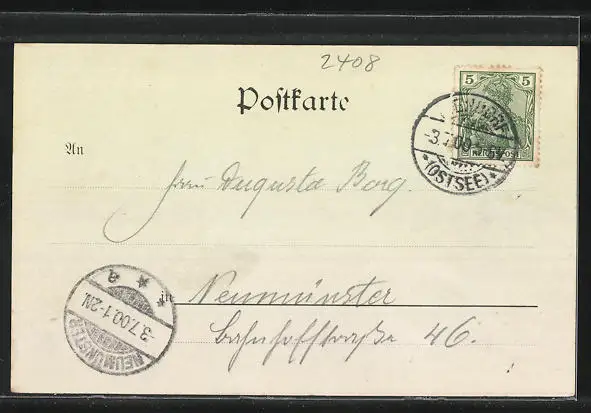 2408
Postkarte
5 5
REICHSPOST
-3.7.00
*(OSTSEE)*
An
Frau Augusta Borg.
in Neumünster
Bahnhofstraße 46.
* * e
-3.7.00.1-2N.
NEUMÜNSTER